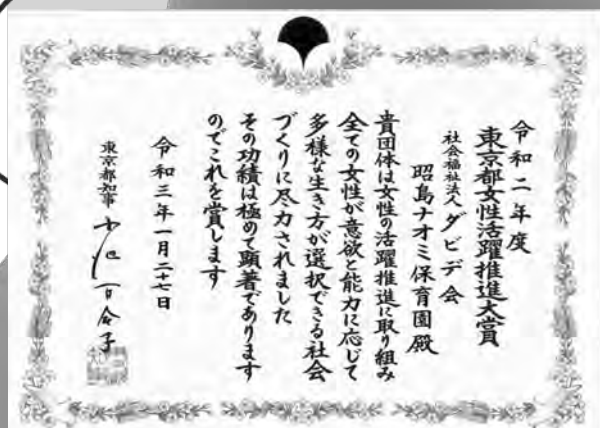 令和二年度
東京都女性活躍推進大賞
社会福祉法人ダビデ会
昭島ナオミ保育園殿
貴団体は女性の活躍推進に取り組み
全ての女性が意欲と能力に応じて
多様な生き方が選択できる社会
づくりに尽力されました
その功績は極めて顕著であります
のでこれを賞します
令和三年一月二十七日
東京都知事 小池百合子